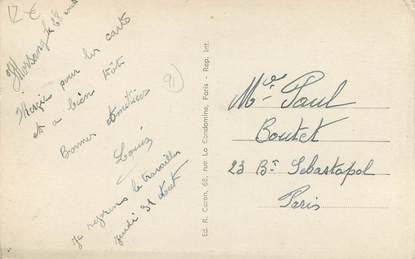 12€
Morsang le 28 août
Merci pour les carte
et a bien tôt
Bonnes Amitiés
Louis
je reprens le travailler
jeudi 31 Aout
Ed. R. Caron, 62, rue La Condamine, Paris - Rep. Int.
Mr Paul
Boutet
23 Bt Sebastapol
Paris